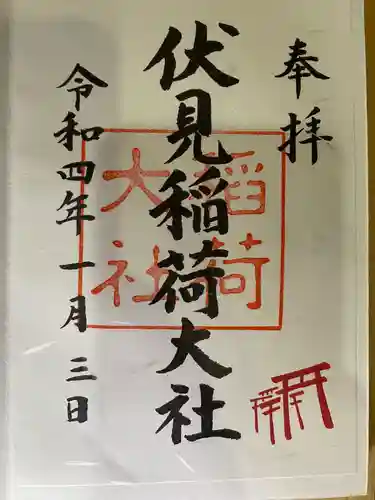 奉拝
伏見稲荷大社
稲荷
大社
令和四年一月三日